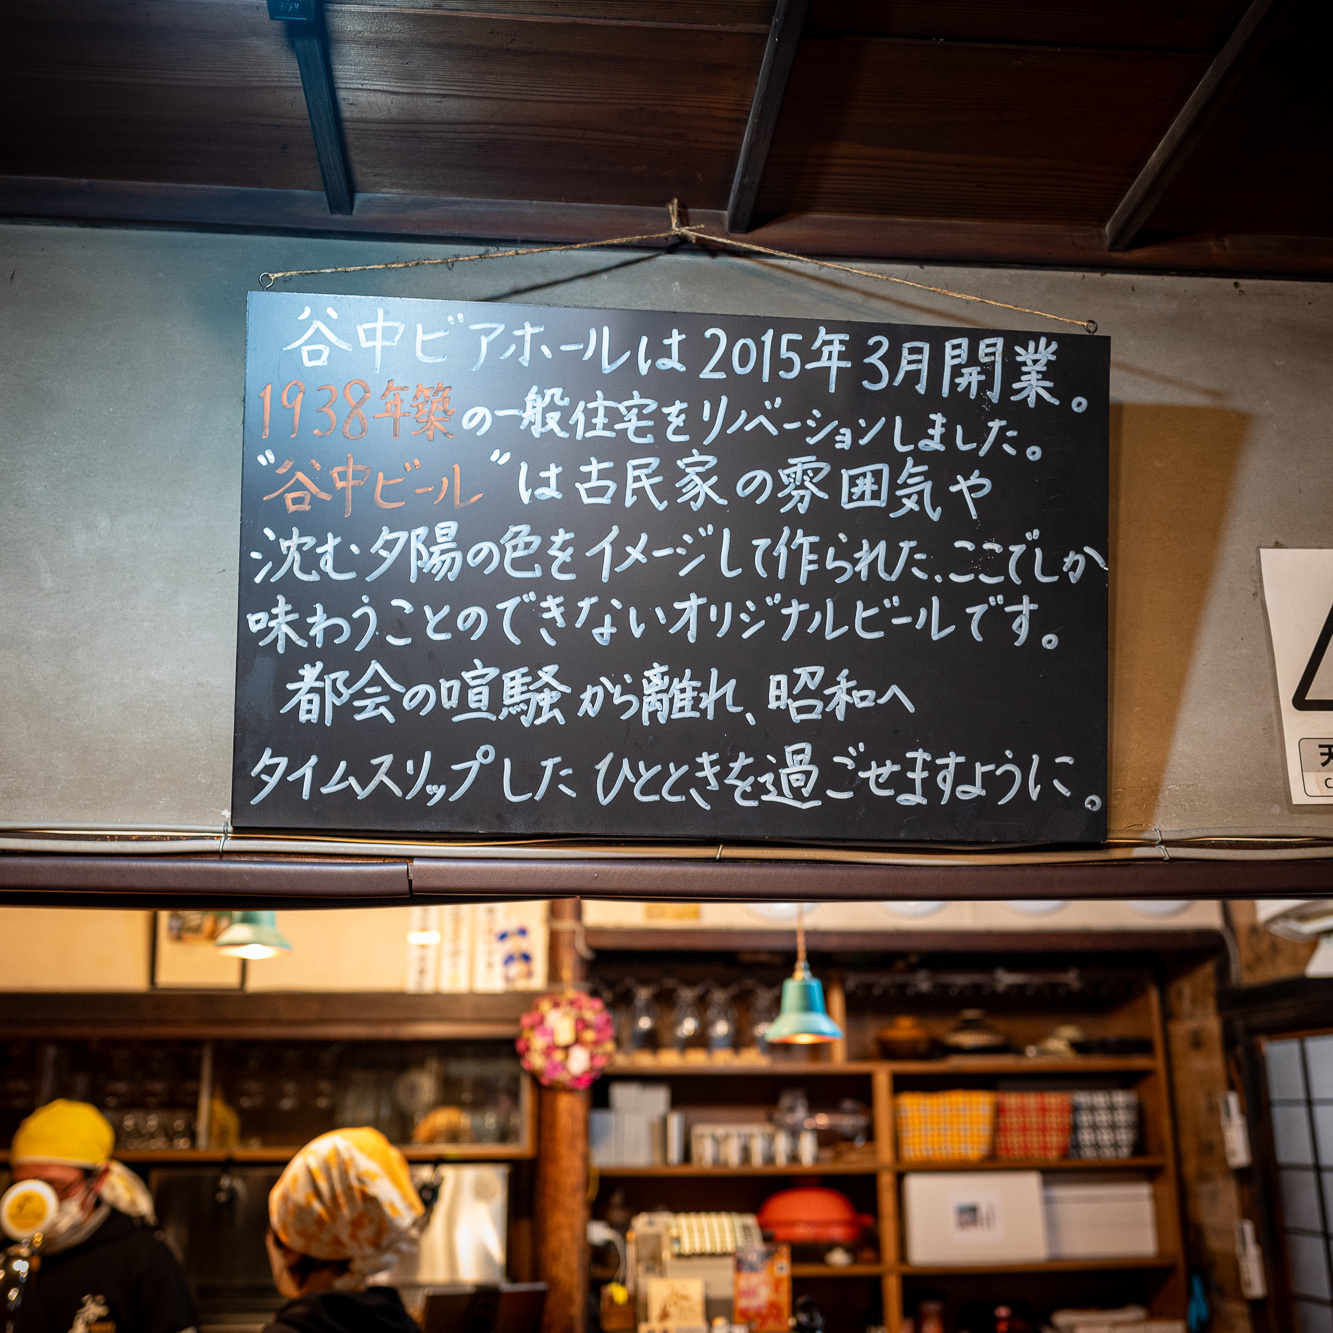 谷中ビアホールは2015年3月開業。
1938年築の一般住宅をリノベーションしました。
"谷中ビール"は古民家の雰囲気や
沈む夕陽の色をイメージして作られた、ここでしか
味わうことのできないオリジナルビールです。
都会の喧騒から離れ、昭和へ
タイムスリップしたひとときを過ごせますように。